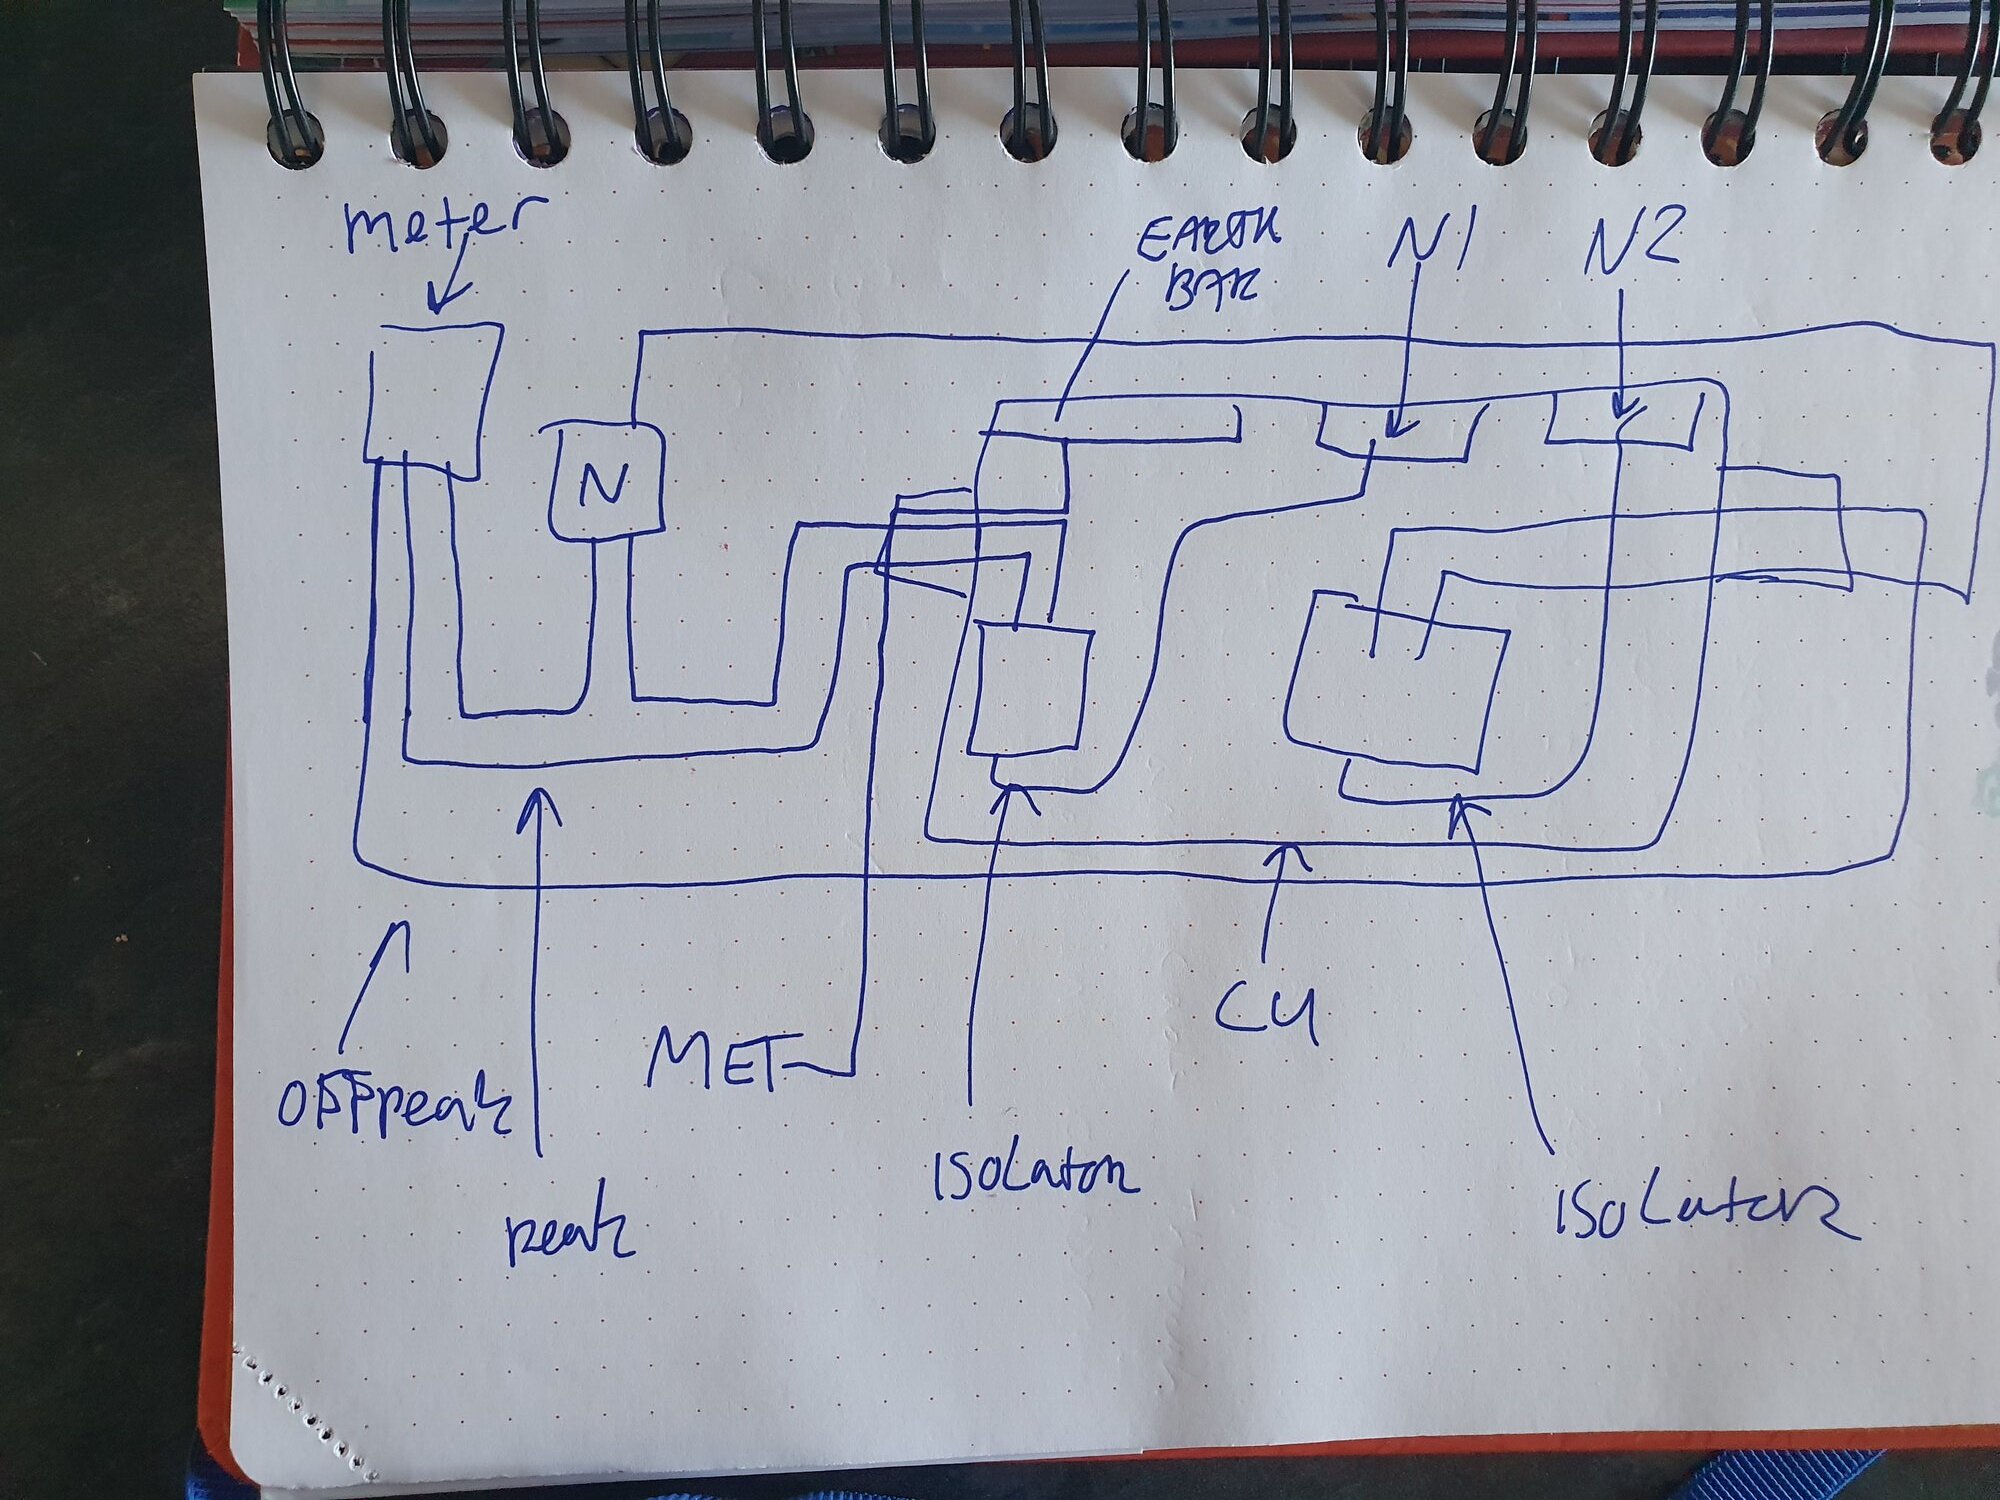 meter
EARTH
BAR
N1
N2
N
OFFpeak
peak
MET
ISOLator
CU
ISOLator